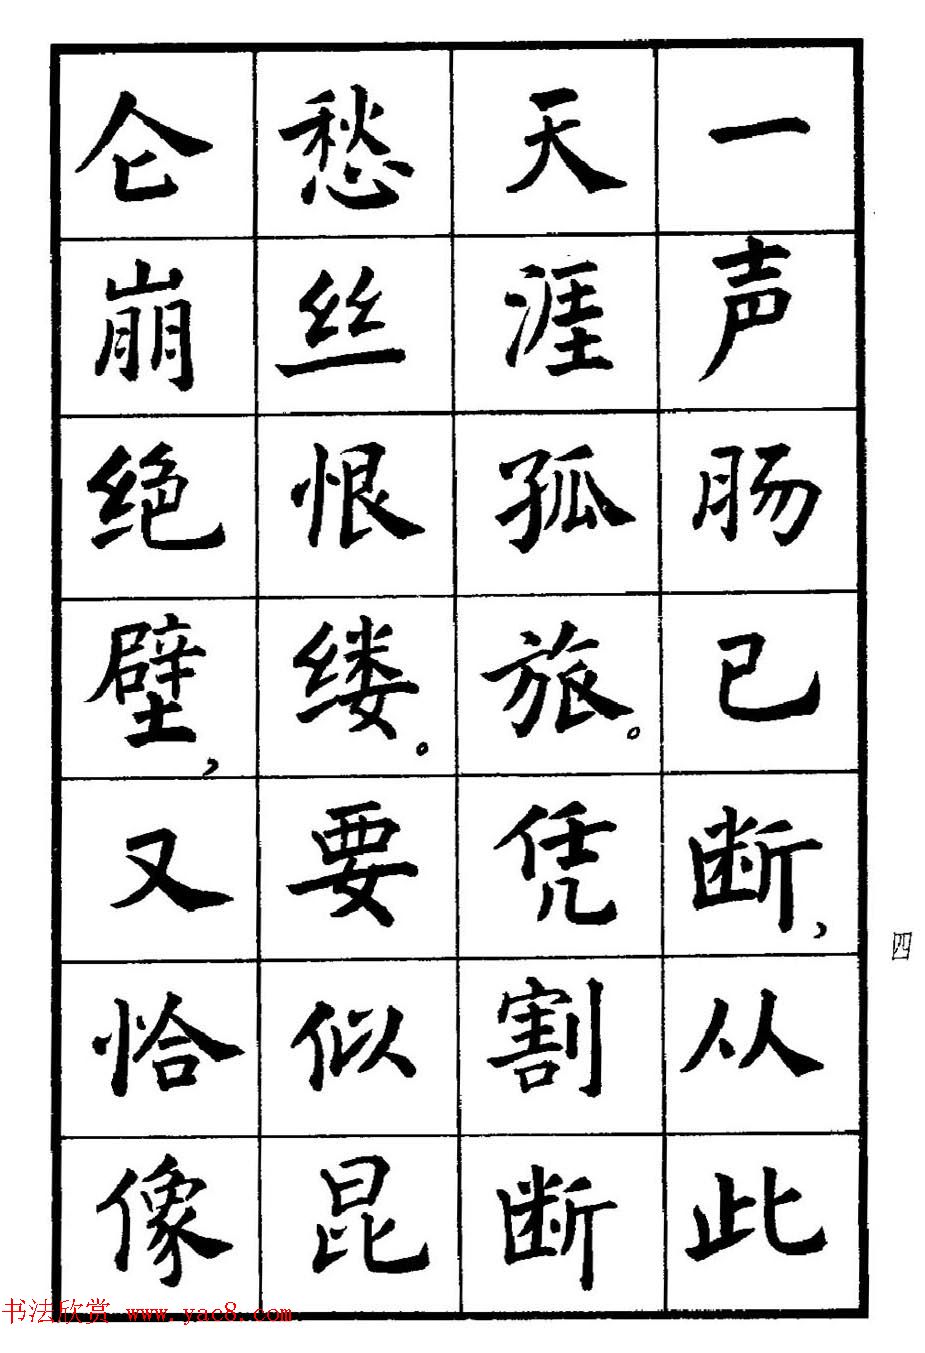 一声肠已断，从此
天涯孤旅。凭割断
愁丝恨缕。要似昆
仑崩绝壁，又恰像
四
书法欣赏 www.yac8.com